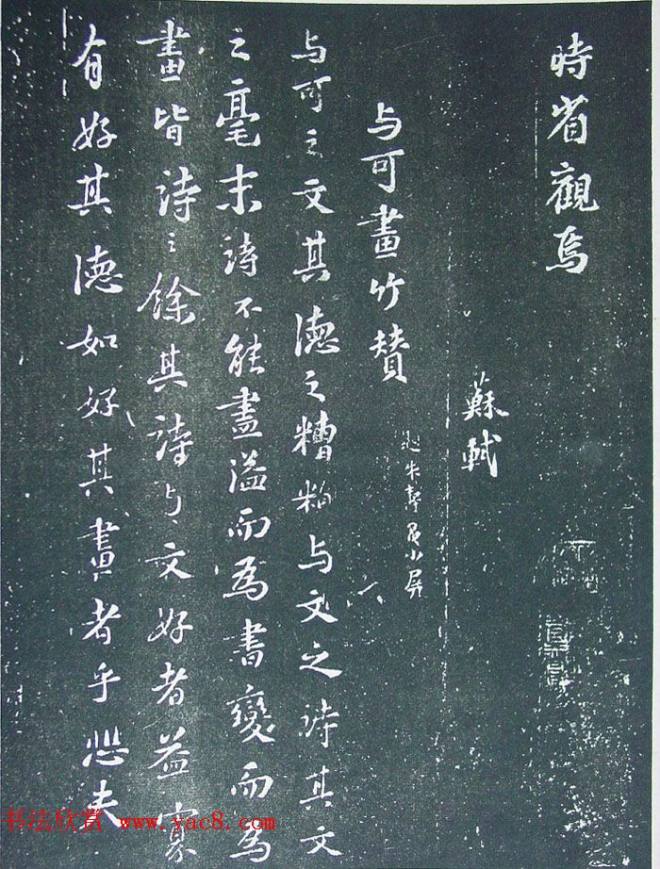 時省觀焉
蘇軾
与可畫竹賛
小屏
与可之文其徳之糟粕与文之詩其文
之毫末詩不能盡溢而為書變而為
畫皆詩之餘其詩与文好者益寡
有好其徳如好其畫者乎悲夫
书法欣赏 www.yac8.com